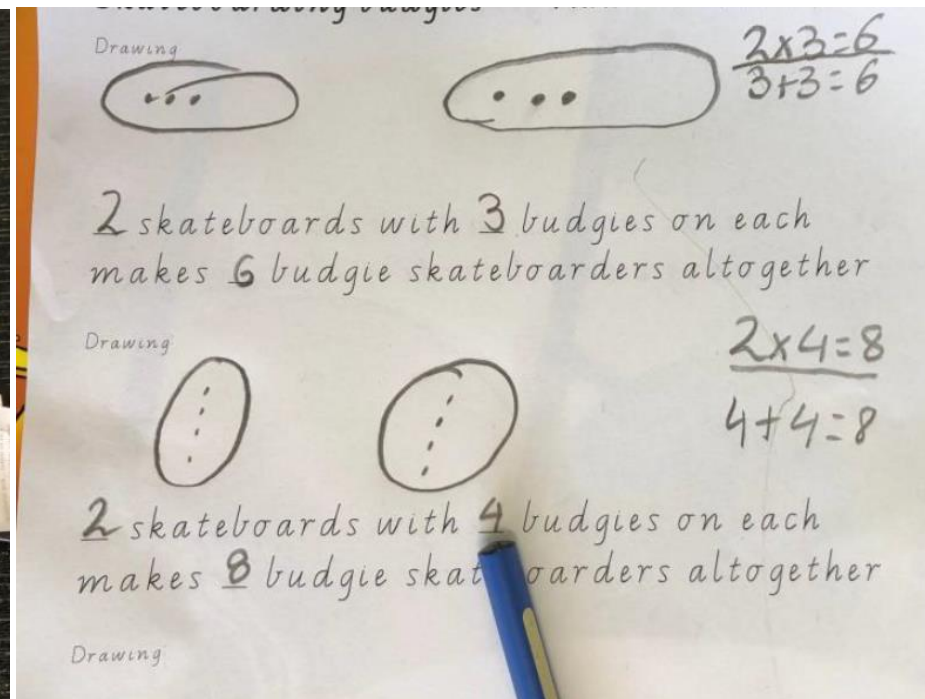 Skateboarding budgies
Drawing
2x3=6
3+3=6
2 skateboards with 3 budgies on each
makes 6 budgie skateboarders altogether
Drawing
2x4=8
4+4=8
2 skateboards with 4 budgies on each
makes 8 budgie skat oarders altogether
Drawing